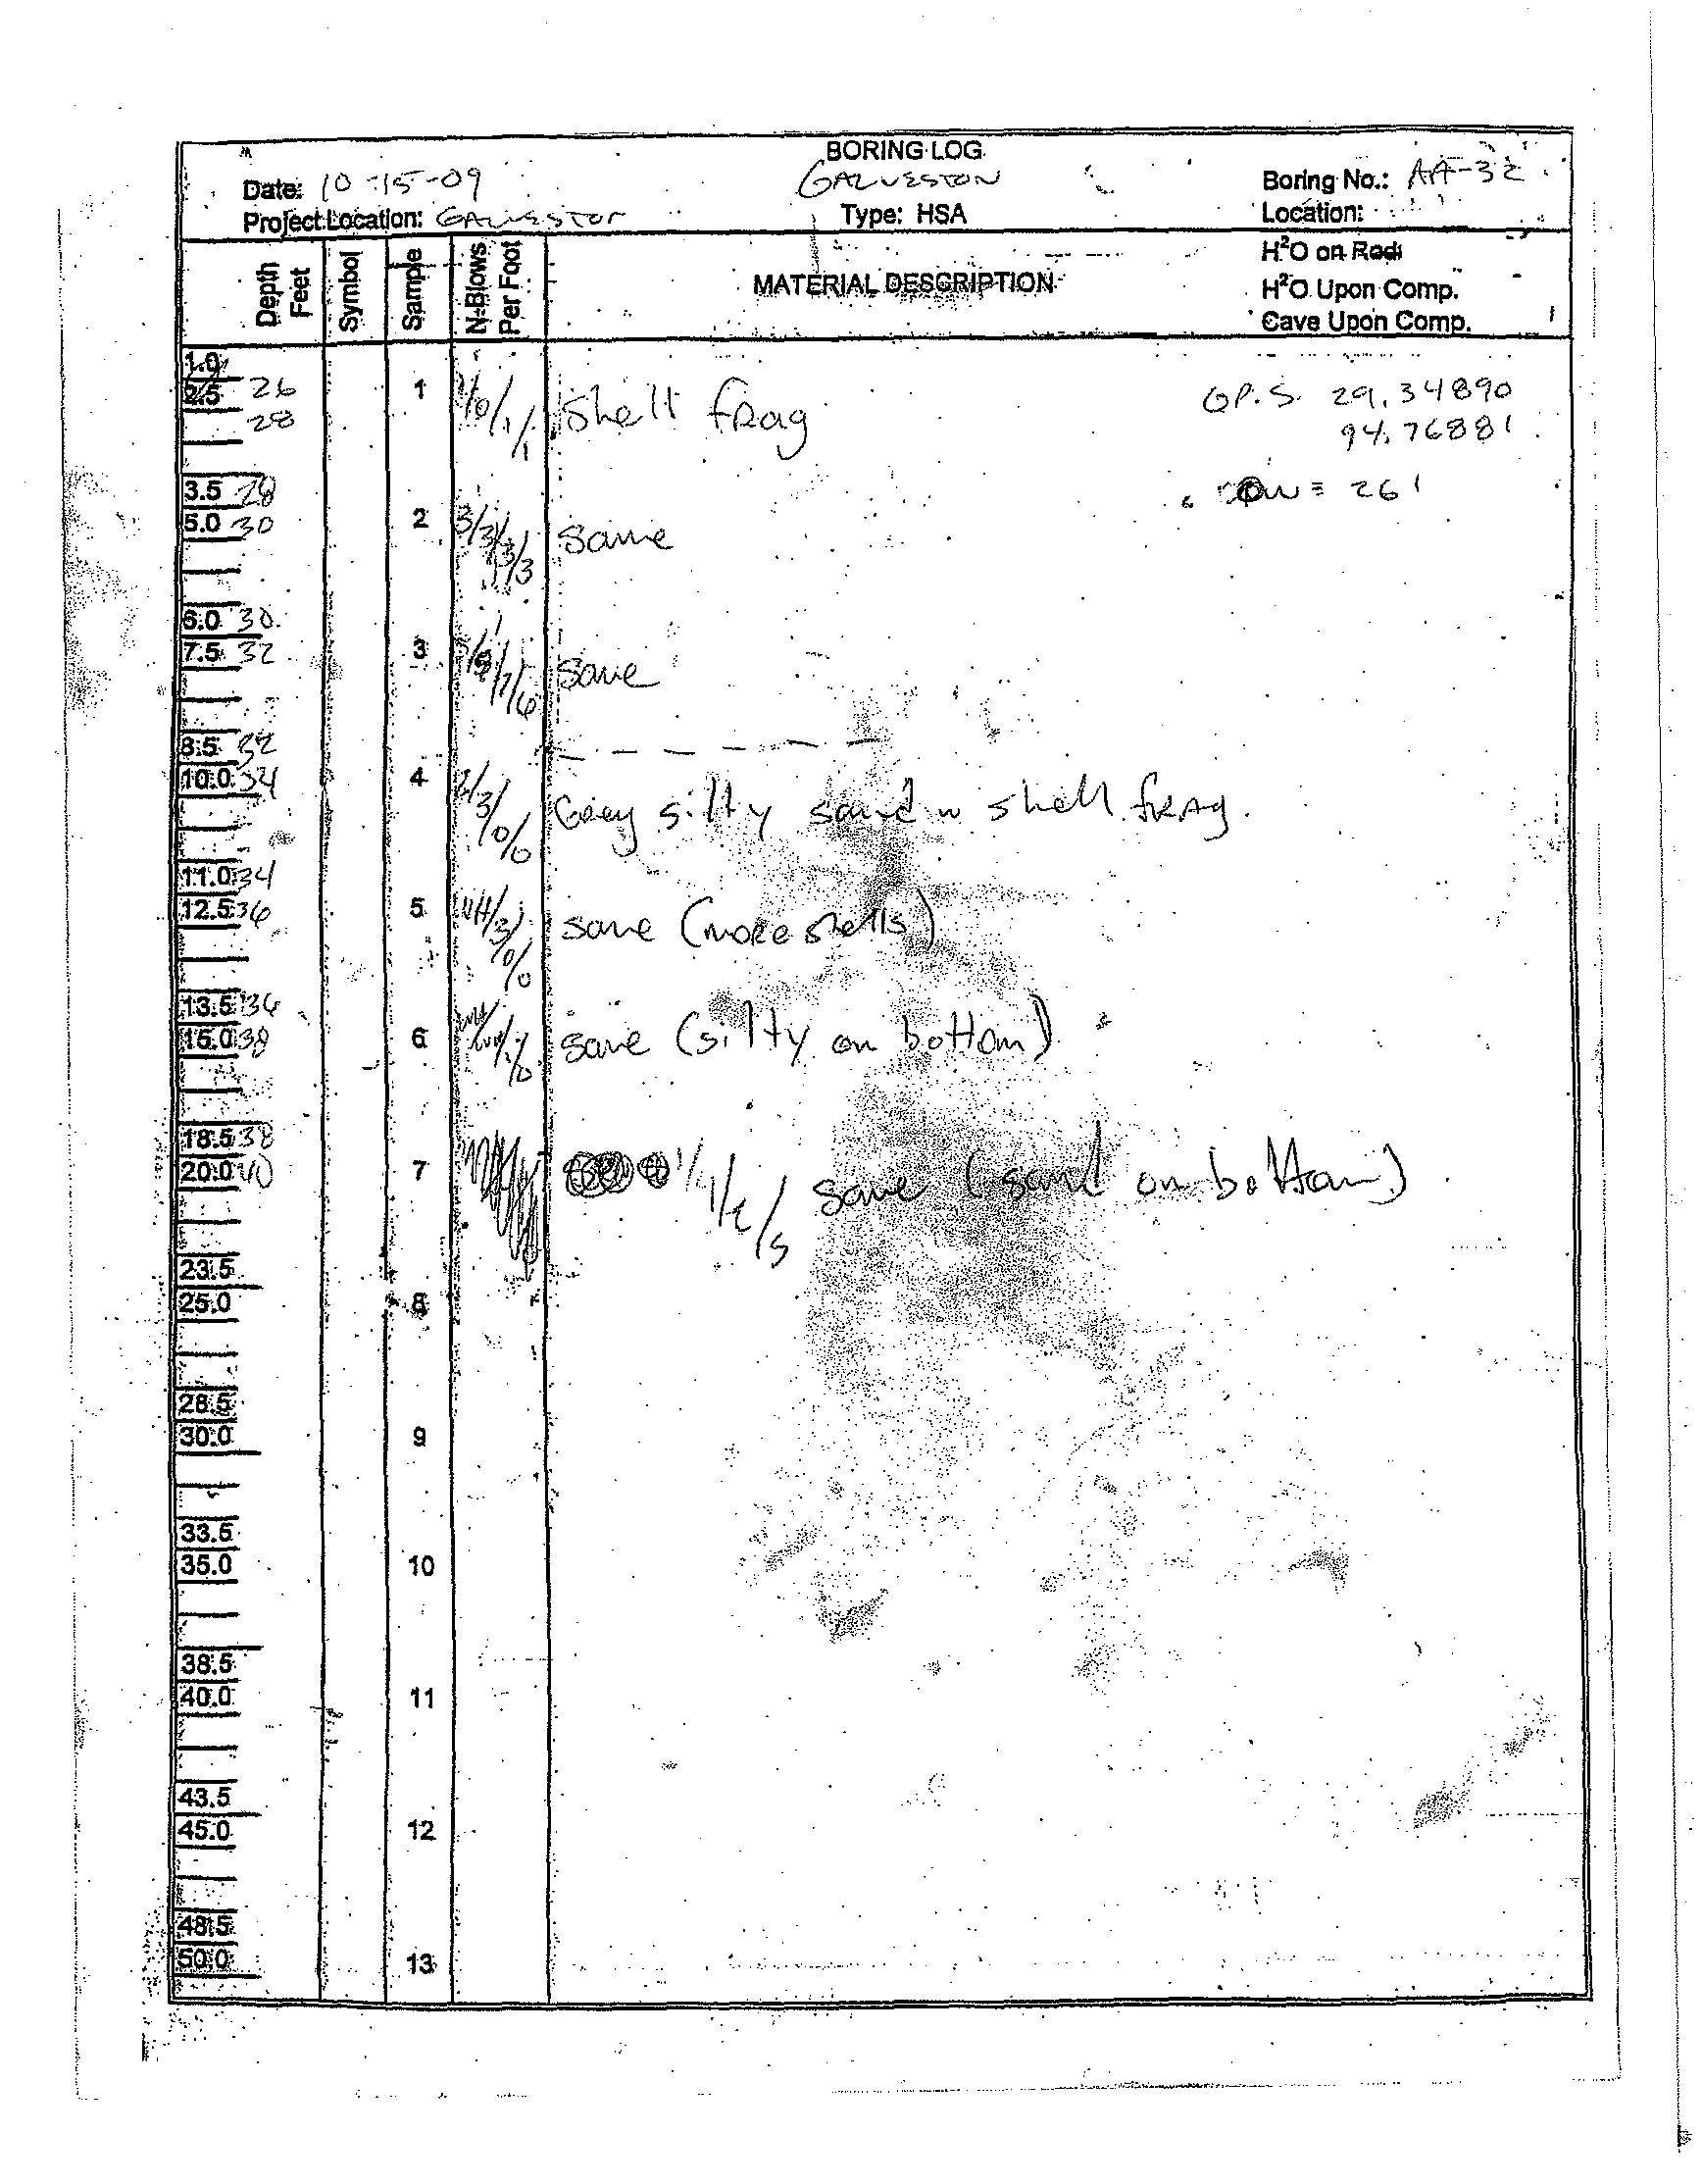 BORING LOG
Date: 10-15-09 GALVESTON Boring No.: AA-32
Project Location: GALVESTON Type: HSA Location:
Depth Feet Symbol Sample N-Blows Per Foot MATERIAL DESCRIPTION H²O on Rod
H²O Upon Comp.
Cave Upon Comp.
1.0
2.5 26 1 1/0/1/1 Shell frag GP.S. 29.34890
28 94.76881
3.5 28 = 26'
5.0 30 2 3/3/3/3 Same
6.0 30
7.5 32 3 /7/6 Same
8.5 32
10.0 34 4 /3/0/0 Grey silty sand w shell frag.
11.0 34
12.5 36 5 WH/3/0/0 same (more shells)
13.5 36
15.0 38 6 same (silty on bottom)
18.5 38
20.0 40 7 same (sand on bottom)
23.5
25.0 8
28.5
30.0 9
33.5
35.0 10
38.5
40.0 11
43.5
45.0 12
48.5
50.0 13